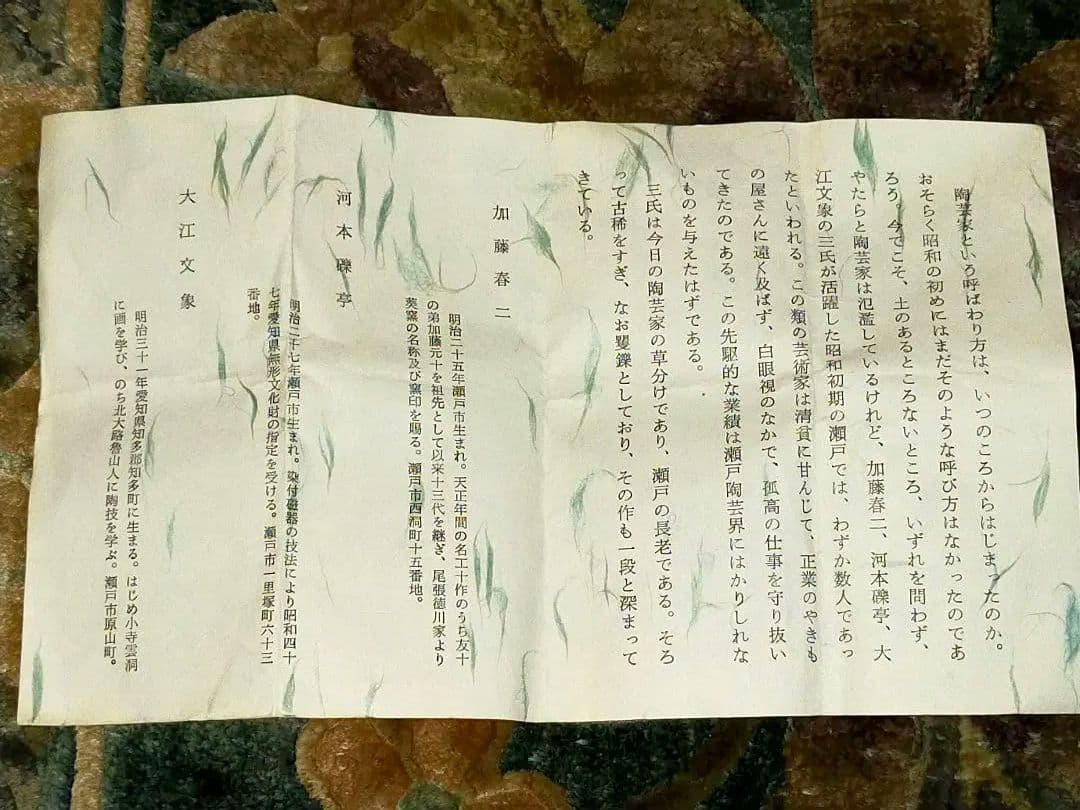 陶芸家という呼ばわり方は、いつのころからはじまったのか。
おそらく昭和の初めにはまだそのような呼び方はなかったのであ
ろう。今でこそ、土のあるところないところ、いずれを問わず、
やたらと陶芸家は氾濫しているけれど、加藤春二、河本礫亭、大
江文象の三氏が活躍した昭和初期の瀬戸では、わずか数人であっ
たといわれる。この類の芸術家は清貧に甘んじて、正業のやきも
の屋さんに遠く及ばず、白眼視のなかで、孤高の仕事を守り抜い
てきたのである。この先駆的な業績は瀬戸陶芸界にはかりしれな
いものを与えたはずである。
三氏は今日の陶芸家の草分けであり、瀬戸の長老である。そろ
って古稀をすぎ、なお矍鑠としており、その作も一段と深まって
きている。
加藤春二
明治二十五年瀬戸市生まれ。天正年間の名工十作のうち友十
の弟加藤元十を祖先として以来十三代を継ぎ、尾張徳川家より
葵窯の名称及び窯印を賜る。瀬戸市西洞町十五番地。
河本礫亭
明治二十七年瀬戸市生まれ。染付磁器の技法により昭和四十
七年愛知県無形文化財の指定を受ける。瀬戸市一里塚町六十三
番地。
大江文象
明治三十一年愛知県知多郡知多町に生まる。はじめ小寺雲洞
に画を学び、のち北大路魯山人に陶技を学ぶ。瀬戸市原山町。